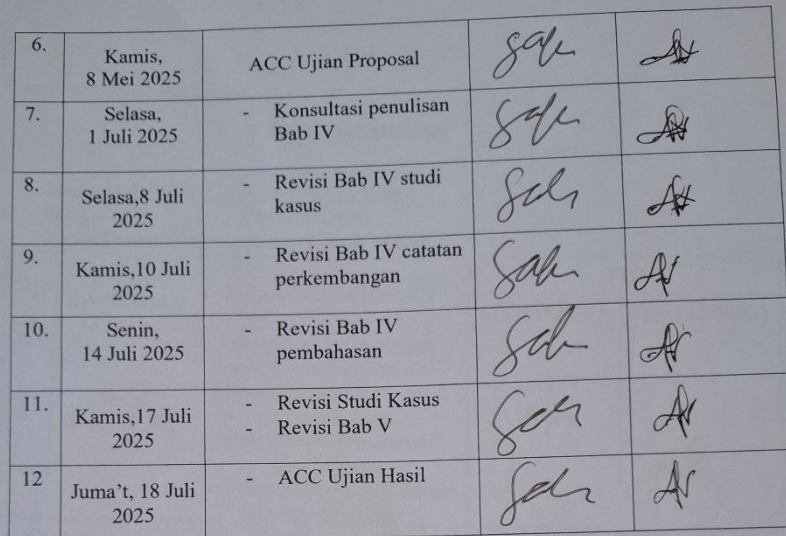 6.
Kamis,
8 Mei 2025
ACC Ujian Proposal
7.
Selasa,
1 Juli 2025
- Konsultasi penulisan
Bab IV
8.
Selasa,8 Juli
2025
- Revisi Bab IV studi
kasus
9.
Kamis,10 Juli
2025
- Revisi Bab IV catatan
perkembangan
10.
Senin,
14 Juli 2025
- Revisi Bab IV
pembahasan
11.
Kamis,17 Juli
2025
- Revisi Studi Kasus
- Revisi Bab V
12
Juma't, 18 Juli
2025
- ACC Ujian Hasil